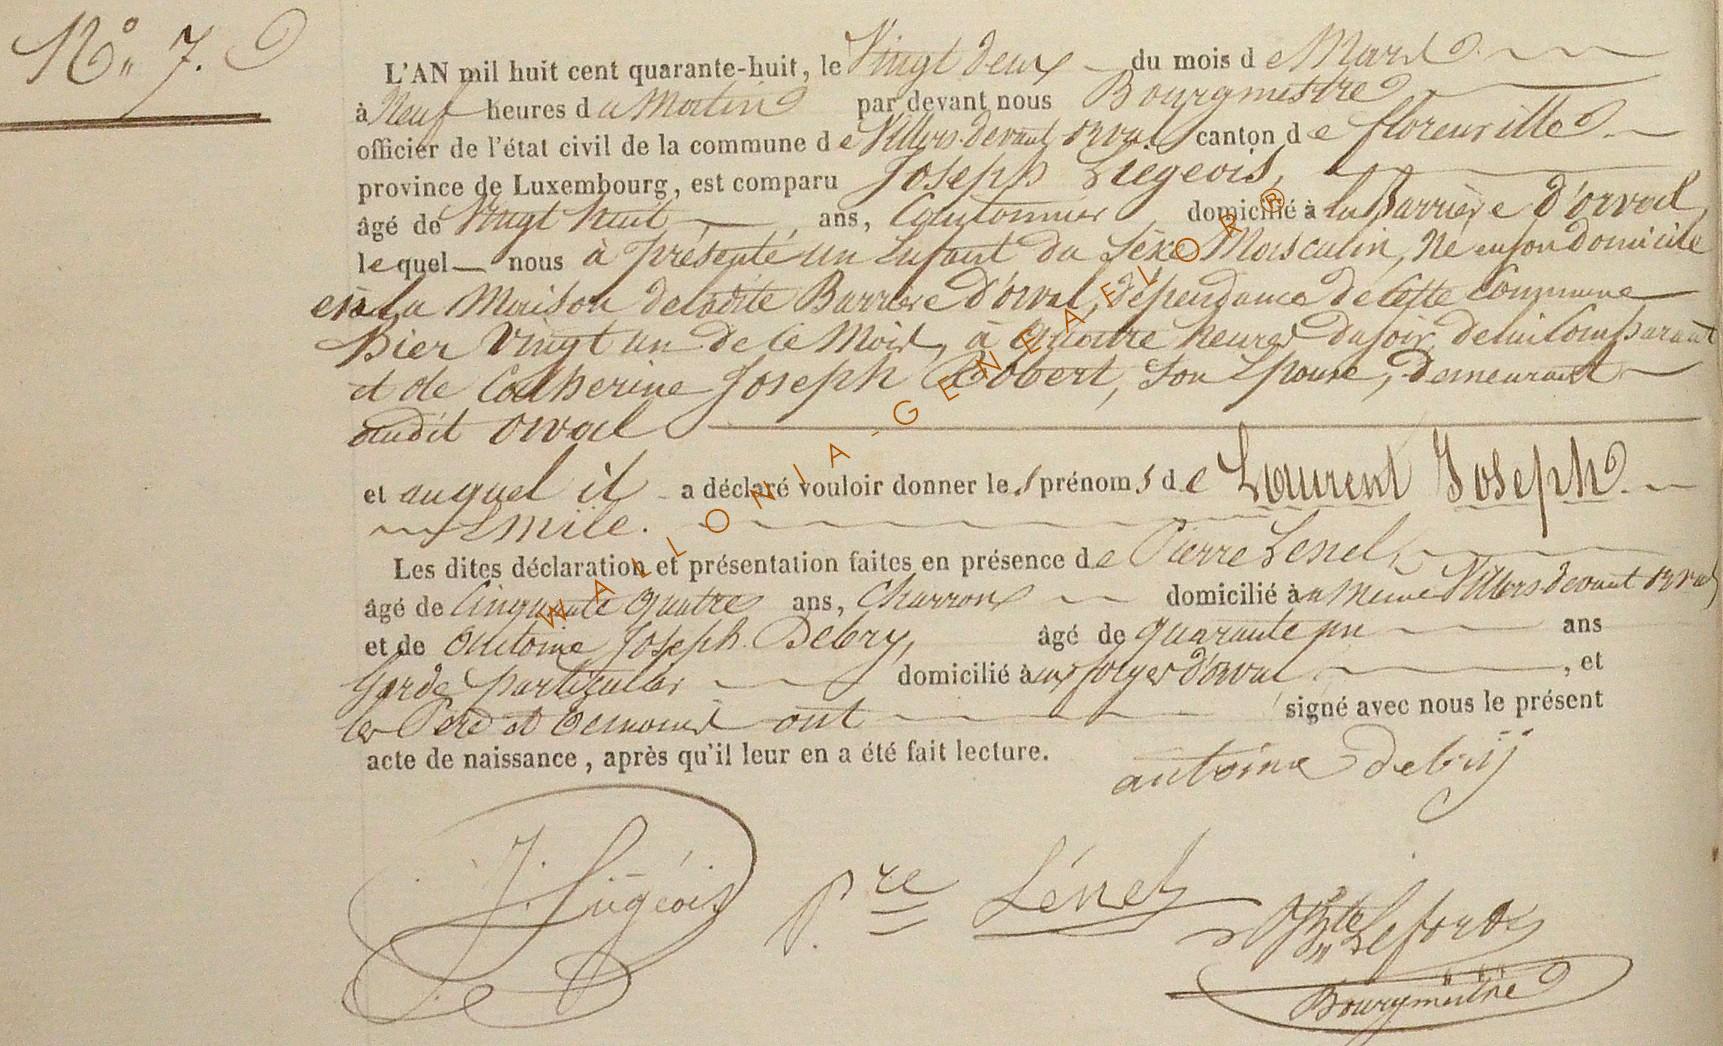 N° 7.
L'AN mil huit cent quarante-huit, le Vingt deux du mois de Mars
à Neuf heures du Matin par devant nous Bourgmestre
officier de l'état civil de la commune de Villers devant orval canton de florenville
province de Luxembourg, est comparu Joseph Liegeois,
âgé de Vingt huit, ans, Cantonnier, domicilié à la Barrière d'orval,
lequel nous à présenté un Enfant du Sèxe Masculin, Né en son Domicile
en la Maison de ladite Barrière d'orval, dépendance de cette Commune
hier vingt un de ce Mois, à quatre heures du soir, de lui Comparant
et de Catherine Joseph Robert, son Epouse, demeurant
audit orval
et auquel il a déclaré vouloir donner les prénoms de Laurent Joseph
Emile.
Les dites déclaration et présentation faites en présence de Pierre Lenel,
âgé de Cinquante quatre ans, Charron domicilié à Villers devant orval
et de Antoine Joseph Debry, âgé de quarante un ans
Garde particulier domicilié aux forges d'orval, et
les Père et témoins ont signé avec nous le présent
acte de naissance, après qu'il leur en a été fait lecture.
antoine debrij
J. Liégéois
P.re Lénel
Lefort
Bourgmestre
WALLONIA-GENEALOR®